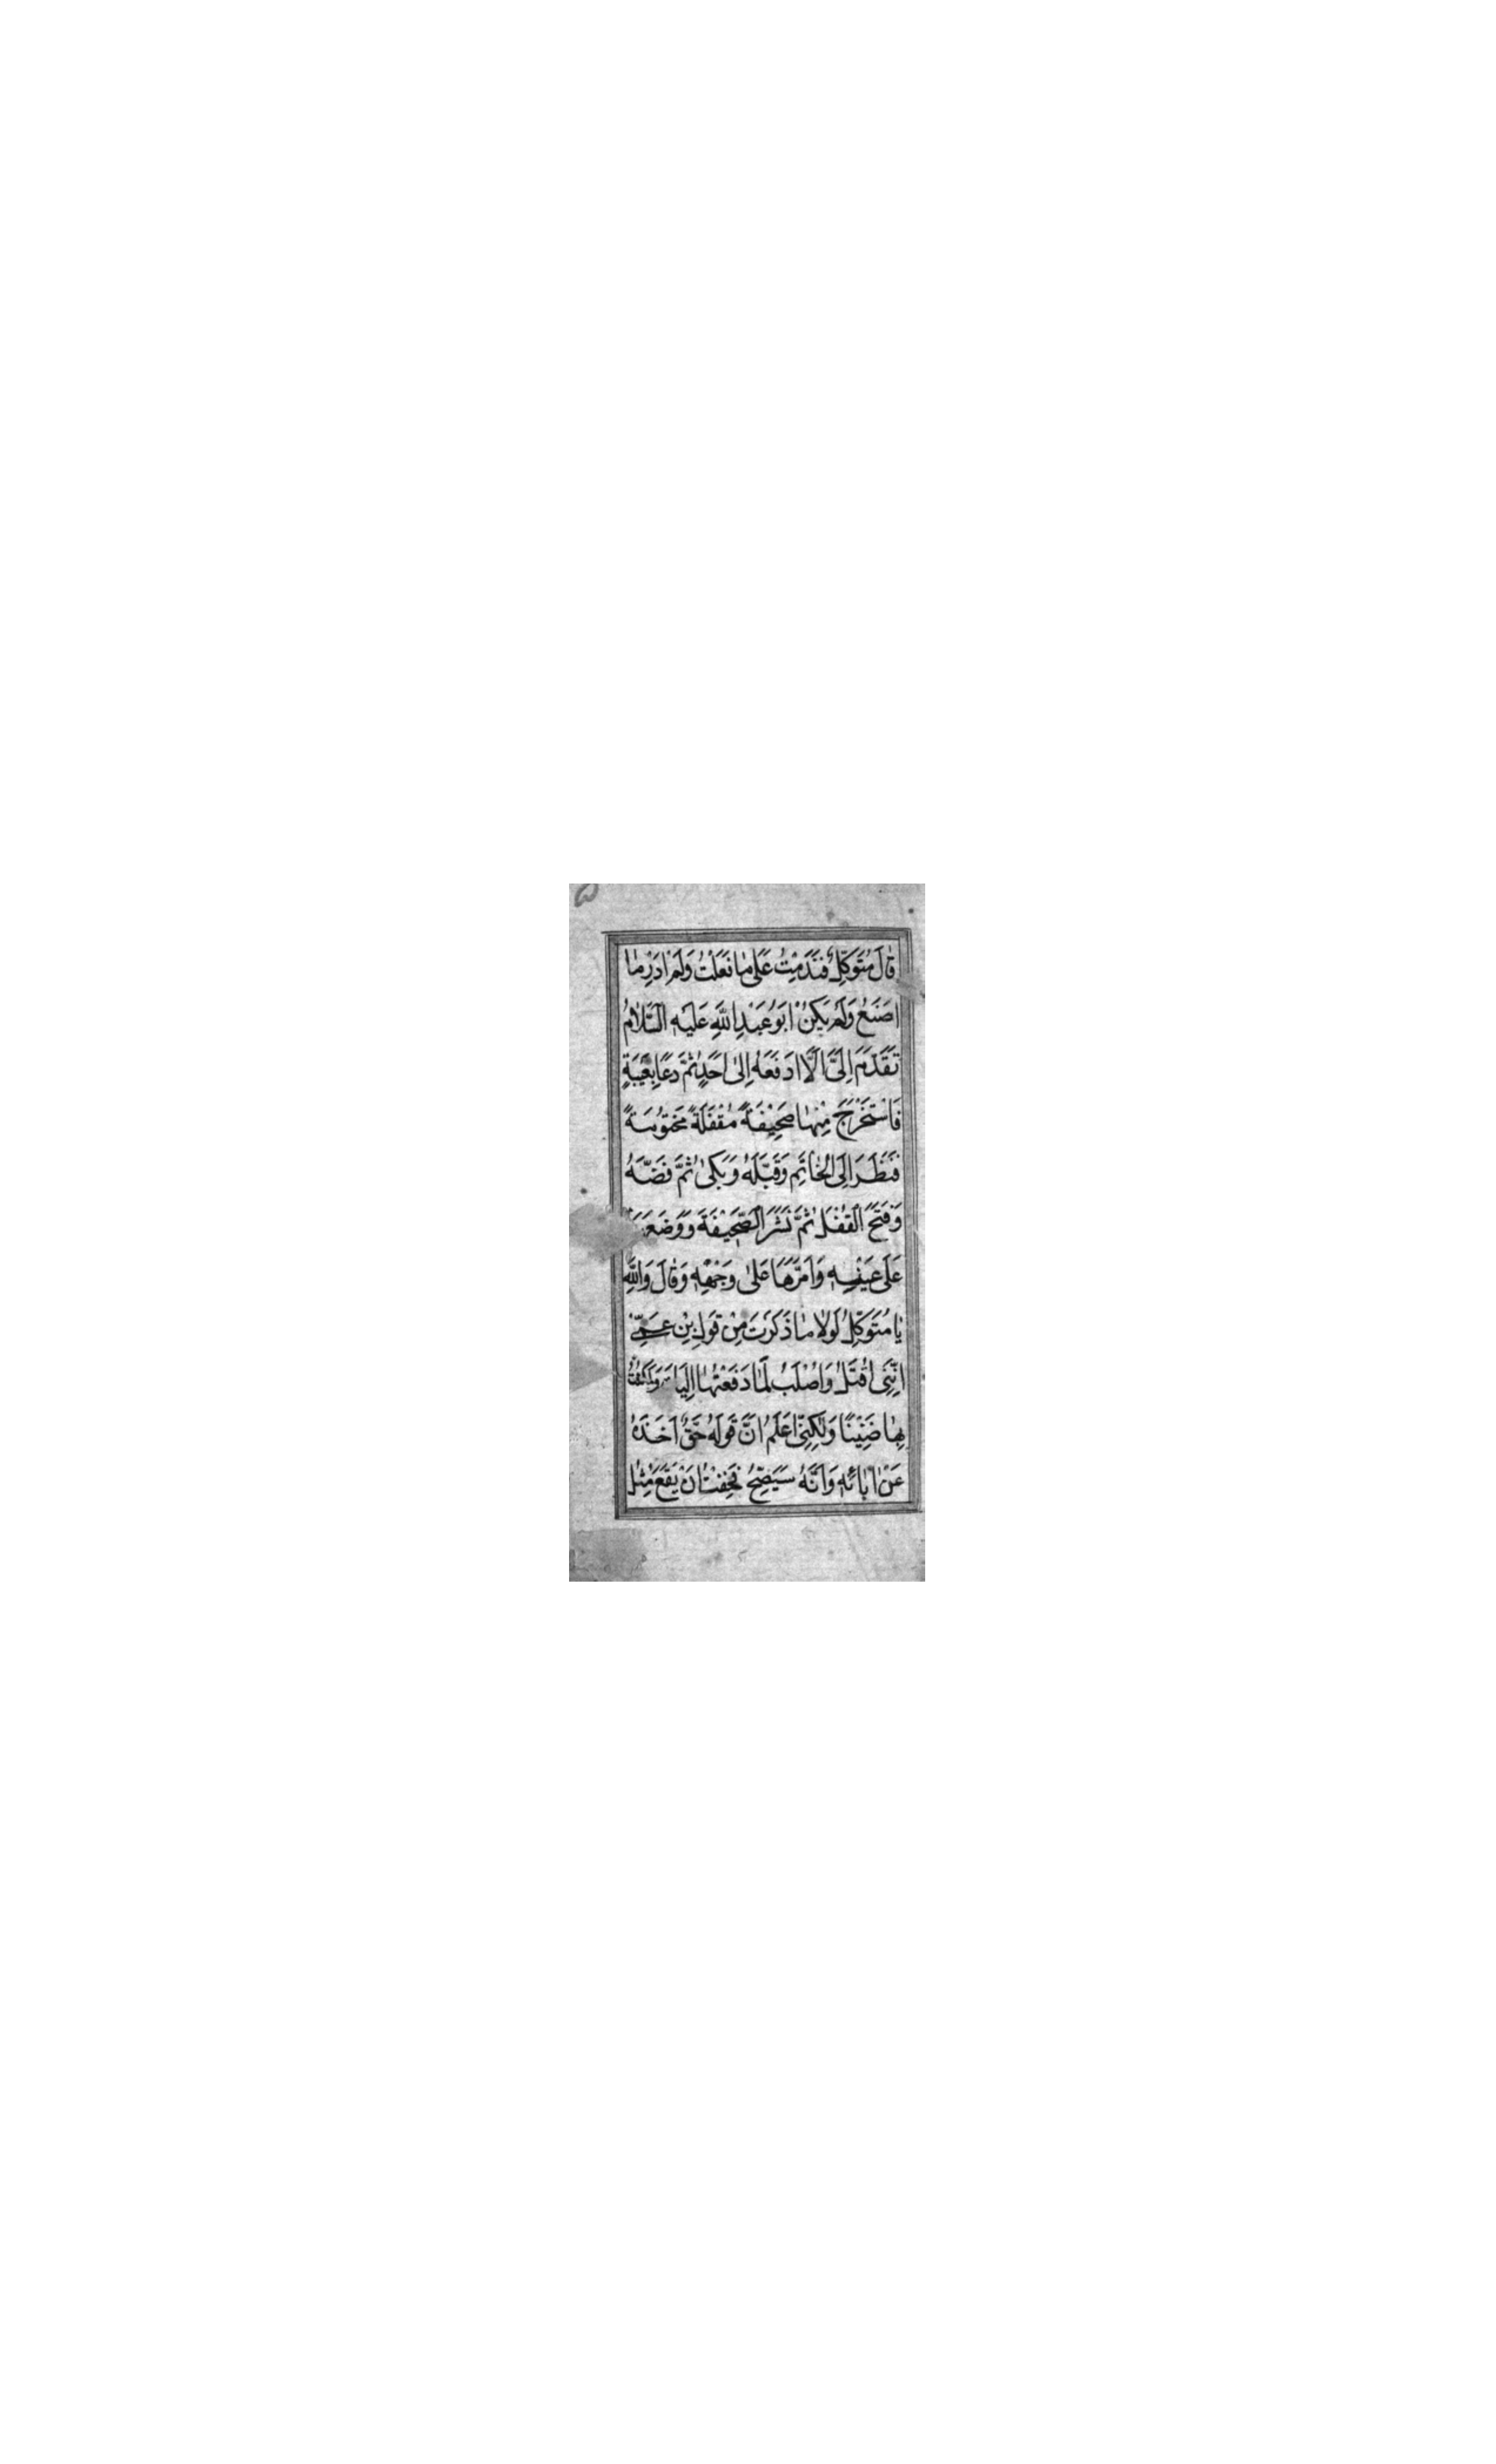 ۵
قٰالَ مُتَوَكِّلٌ فَنَدِمْتُ عَلٰى مٰا فَعَلْتُ وَلَمْ اَدْرِ مٰا
اَصْنَعُ وَلَمْ يَكُنْ اَبُو عَبْدِ اللّٰهِ عَلَيْهِ السَّلٰامُ
تَقَدَّمَ اِلَىَّ اَلَّا اَدْفَعَهُ اِلٰى اَحَدٍ ثُمَّ دَعَا بِعَيْبَةٍ
فَاسْتَخْرَجَ مِنْهٰا صَحِيْفَةً مُقْفَلَةً مَخْتُوْمَةً
فَنَظَرَ اِلَى الْخٰاتَمِ وَقَبَّلَهُ وَبَكٰى ثُمَّ فَضَّهُ
وَفَتَحَ الْقُفْلَ ثُمَّ نَشَرَ الصَّحِيْفَةَ وَوَضَعَهَا
عَلٰى عَيْنِهِ وَاَمَرَّهَا عَلٰى وَجْهِهِ وَقٰالَ وَاللّٰهِ
يٰا مُتَوَكِّلُ لَوْلٰا مٰا ذَكَرْتَ مِنْ قَوْلِ بْنِ عَمِّىْ
اِنَّنِى اُقْتَلُ وَاُصْلَبُ لَمٰا دَفَعْتُهٰا اِلَيْكَ وَلَكُنْتُ
بِهٰا ضَنِيْنًا وَلٰكِنِّى اَعْلَمُ اَنَّ قَوْلَهُ حَقٌّ اَخَذَهُ
عَنْ اٰبٰائِهِ وَاَنَّهُ سَيَصِحُّ فَخِفْتُ اَنْ يَقَعَ مِثْلُ